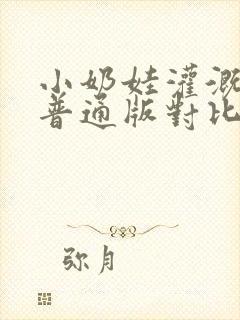 小奶娃灌溉
普通版對比
弥月